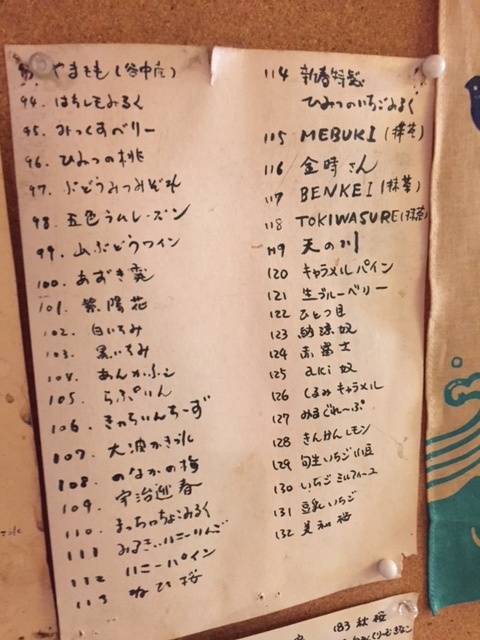 93. やまもも(谷中店)
94. はちみつみるく
95. みっくすベリー
96. ひみつの桃
97. ぶどうみつみぞれ
98. 五色ラムレーズン
99. 山ぶどうワイン
100. あずき
101. 紫陽花
102. 白いちみ
103. 黒いちみ
104. あんかふぇ
105. らぷりん
106. きゃらいんちーず
107. 大波かき氷
108. のなかの梅
109. 宇治迎春
110. まっちゃちょこみるく
111 みるきぃハニーりんご
112 ハニーパイン
113 ねひ桜
114 新春特製
ひみつのいちごみるく
115 MEBUKI(抹茶)
116 金時さん
117 BENKEI(抹茶)
118 TOKIWASURE(抹茶)
119 天の川
120 キャラメルパイン
121 生ブルーベリー
122 ひとつ目
123 納涼奴
124 赤富士
125 aki 奴
126 くるみキャラメル
127 みるぐれーぷ
128 きんかんレモン
129 旬生いちご小豆
130 いちごミルフィーユ
131 豆乳いちご
132 美和桜
183 秋桜